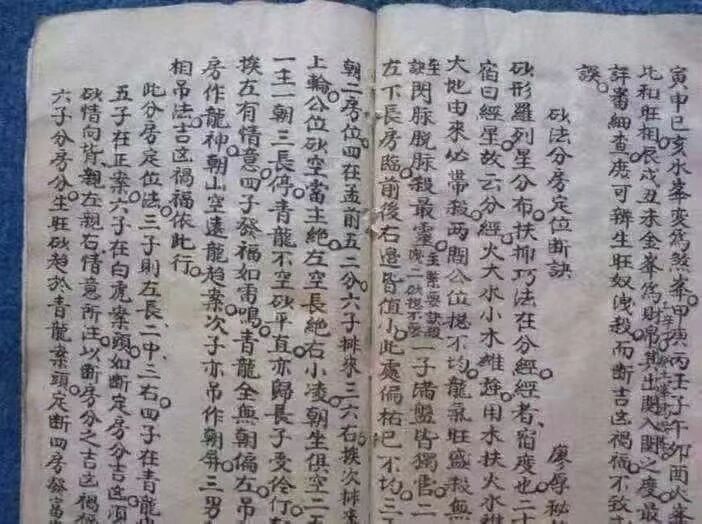 寅申巳亥水峯变為煞峯甲庚丙壬子午卯酉火峯
比和旺相辰戌丑未金峯為財帛其出開入閗之度最
評審細查庶可辨生旺奴洩殺而断吉凶禍福不致
誤
砂法分房定位断訣
廖厚秘
砂形羅列星分布扶抑巧法在分經經者宿度也二十
宿曰經星故云分經火大水小木維旌用木扶火水
大地由來必帶殺两間公位摠不均龍氣旺盛殺無
至訣閃脉脱脉殺最靈
一子满盤皆獨管二
左下長房臨前後右邊皆值小此處偏枯已不均三
朝二房位四在孟前五二分六子排來三六右挨次排
上輪公位砂空當主絶左空長絶右小凌朝坐俱空二
一主一朝三長停青龍不空砂平直亦歸長子受伶仃
挨左有情意四子發福如雷鳴青龍全無朝偏左吊
房作龍神朝山空遠龍趋案次子亦吊作朝屏三男
相吊法吉凶禍福依此行
此分房定位法三子則左長二中三右四子在青龍
五子在正案六子在白虎案頭如断定房分吉凶須
砂情向背親左親右情意所注以断房分之吉凶禍
六子分房分生旺砂趋於青龍案頭定断四房發富